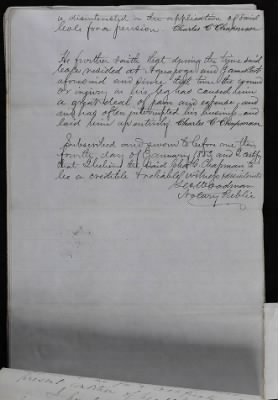 is disinterested in the application of said
Cole for a pension. Charles C Chapman
He further saith that during the time said
Cole resided at and
aforesaid and since that time the wound
or injury in his leg has caused him
a great deal of pain and expense, and
and has often interrupted his business and
laid him up entirely Charles C Chapman
Subscribed and sworn to before me this
fourth day of January 1883 and I certify
that I believe the said Chas C. Chapman to
be a credible & reliable witness &
Woodman
Notary Public
present